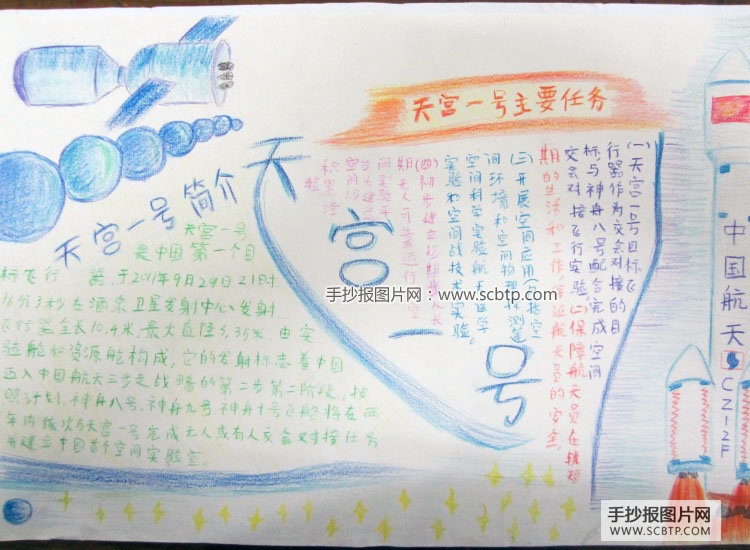 天宫一号主要任务
天宫一号
天宫一号简介
天宫一号
是中国第一个目
标飞行器,于2011年9月29日21时
16分3秒在酒泉卫星发射中心发射
飞行器全长10.4米,最大直径3.35米,由实
验舱和资源舱构成。它的发射标志着中国
迈入中国航天三步走战略的第二步第二阶段,按
照计划,神舟八号,神舟九号,神舟十号飞船将在两
年内依次与天宫一号完成无人或有人交会对接任务
并建立中国首个空间实验室。
(一)天宫一号目标飞
行器作为交会对接的目
标,与神舟八号配合完成空间
交会对接飞行实验(二)保障航天员在轨短
期的生活和工作,保证航天员的安全
(三)开展空间应用(包括空
间环境和空间物理探测)
空间科学实验航天医学
实验和空间战技术实验。
(四)初步建立短期载人长
期无人可靠运行的空
间实验
积累经
验
中国航天
CZ12F
手抄报图片网:www.scbtp.com
手抄报图片网
SCBTP.COM